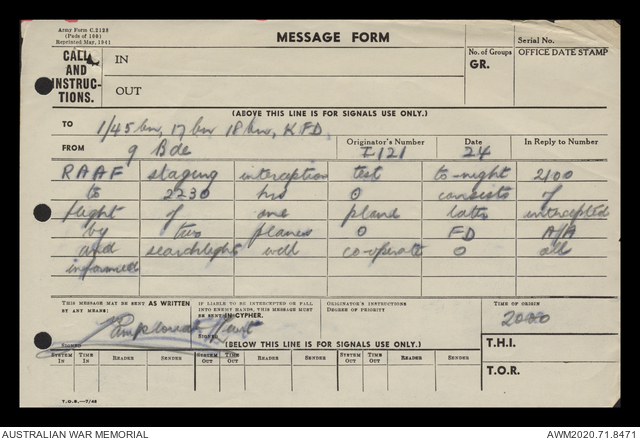 Army Form C.2128
(Pads of 100)
Reprinted Mar., 1941
MESSAGE FORM
Serial No.
CALL AND INSTRUCTIONS.
IN
OUT
No. of Groups
GR.
OFFICE DATE STAMP
(ABOVE THIS LINE IS FOR SIGNALS USE ONLY.)
TO 1/45 bn, 17 bn 18 bn, KFD.
FROM 9 Bde
Originator's Number I121
Date 24
In Reply to Number
RAAF staging interception test to-night 2100
to 2230 hrs O consists of
flight of one plane later intercepted
by two planes O FD A/A
and searchlight will co-operate O all
informed
THIS MESSAGE MAY BE SENT AS WRITTEN BY ANY MEANS:
IF LIABLE TO BE INTERCEPTED OR FALL INTO ENEMY HANDS, THIS MESSAGE MUST BE SENT IN CYPHER.
ORIGINATOR'S INSTRUCTIONS
DEGREE OF PRIORITY
TIME OF ORIGIN
2000
SIGNED
SIGNED
(BELOW THIS LINE IS FOR SIGNALS USE ONLY.)
T.H.I.
SYSTEM IN TIME IN READER SENDER SYSTEM OUT TIME OUT READER SENDER SYSTEM OUT TIME OUT READER SENDER
T.O.R.
AUSTRALIAN WAR MEMORIAL
AWM2020.71.8471